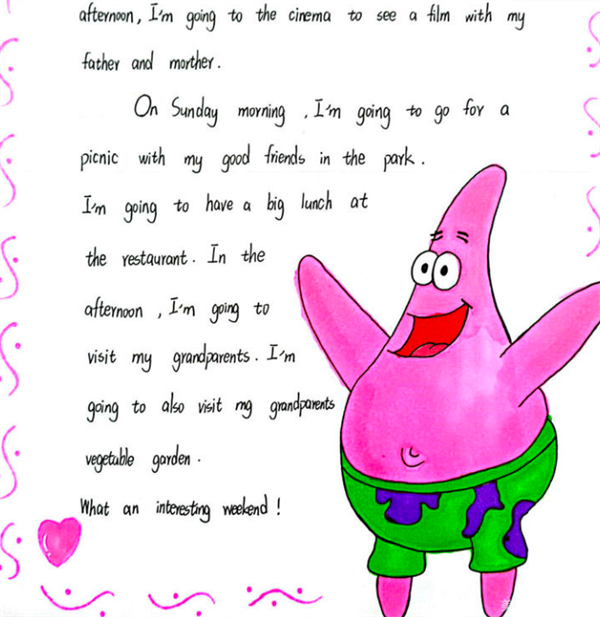 afternoon, I'm going to the cinema to see a film with my
father and morther.
On Sunday morning , I'm going to go for a
picnic with my good friends in the park.
I'm going to have a big lunch at
the restaurant. In the
afternoon , I'm going to
visit my grandparents. I'm
going to also visit mg grandparents
vegetable garden.
What an interesting weekend !